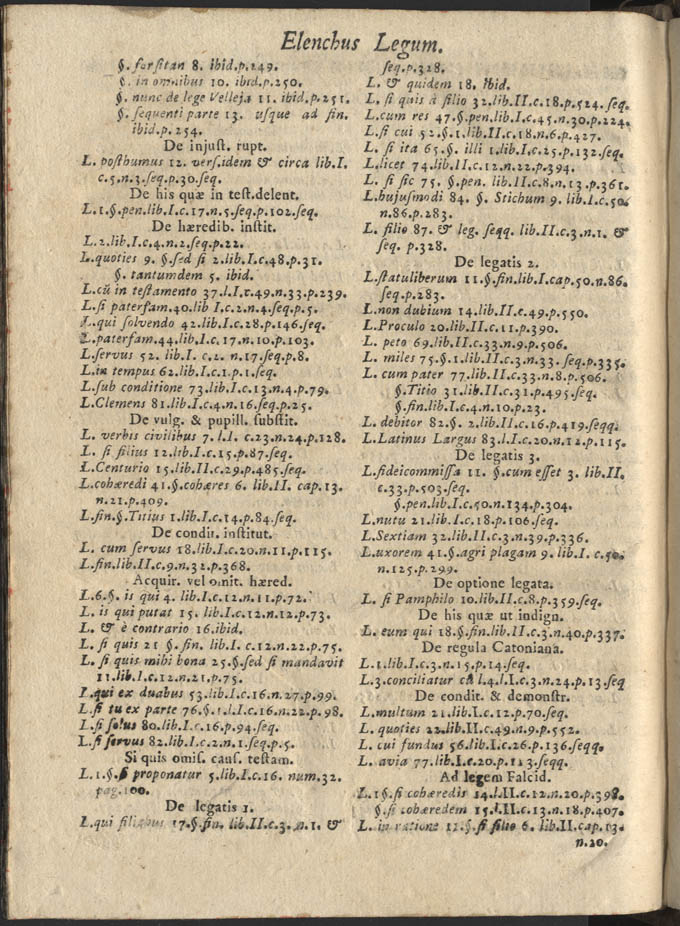 Elenchus Legum.
§. forsitan 8. ibid.p.249.
§. in omnibus 10. ibid.p.250.
§. nunc de lege Velleja 11. ibid.p.251.
§. sequenti parte 13. usque ad fin.
ibid.p. 254.
De injust. rupt.
L. posthumus 12. vers.idem & circa lib.I.
c.5.n.3.seq.p.30.seq.
De his quæ in test.delent.
L.1.§.pen.lib.I.c.17.n.5.seq.p.102.seq.
De hæredib. instit.
L.2.lib.I.c.4.n.2.seq.p.22.
L.quoties 9. §.sed si 2.lib.I.c.48.p.31.
§. tantumdem 5. ibid.
L.cũ in testamento 37.l.I.c.49.n.33.p.239.
L.si paterfam.40.lib I.c.2.n.4.seq.p.5.
L.qui solvendo 42.lib.I.c.28.p.146.seq.
L.paterfam.44.lib.I.c.17.n.10.p.103.
L.servus 52. lib.I. c.2. n.17.seq.p.8.
L.in tempus 62.lib.I.c.1.p.1.seq.
L.sub conditione 73.lib.I.c.13.n.4.p.79.
L.Clemens 81.lib.I.c.4.n.16.seq.p.25.
De vulg. & pupill. substit.
L. verbis civilibus 7. l.I. c.23.n.24.p.128.
L. si filius 12.lib.I.c.15.p.87.seq.
L.Centurio 15.lib.II.c.29.p.485.seq.
L.cohæredi 41.§.cohæres 6. lib.II. cap.13.
n.21.p.409.
L.fin.§.Titius 1.lib.I.c.14.p.84.seq.
De condit. institut.
L. cum servus 18.lib.I.c.20.n.11.p.115.
L.fin.lib.II.c.9.n.32.p.368.
Acquir. vel omit. hæred.
L.6.§. is qui 4. lib.I.c.12.n.11.p.72.
L. is qui putat 15. lib.I.c.12.n.12.p.73.
L. & è contrario 16.ibid.
L. si quis 21 §. fin. lib.I. c.12.n.22.p.75.
L. si quis mihi bona 25.§.sed si mandavit
11.lib.I.c.12.n.21.p.75.
L.qui ex duabus 53.lib.I.c.16.n.27.p.99.
L.si tu ex parte 76.§.1.l.I.c.16.n.22.p.98.
L.si solus 80.lib.I.c.16.p.94.seq.
L.si servus 82.lib.I.c.2.n.1.seq.p.5.
Si quis omis. caus. testam.
L.1.§. proponatur 5.lib.I.c.16. num.32.
pag.100.
De legatis 1.
L.qui filiabus 17.§.fin. lib.II.c.3. n.1. &
seq.p.328.
L. & quidem 18. ibid.
L. si quis à filio 32.lib.II.c.18.p.524.seq.
L.cum res 47.§.pen.lib.I.c.45.n.30.p.224.
L.si cui 52.§.1.lib.II.c.18.n.6.p.427.
L. si ita 65.§. illi 1.lib.I.c.25.p.132.seq.
L.licet 74.lib.II.c.12.n.22.p.394.
L. si sic 75. §.pen. lib.II.c.8.n.13.p.361.
L.hujusmodi 84. §. Stichum 9. lib.I.c.50.
n.86.p.283.
L. filio 87. & leg. seqq. lib.II.c.3.n.1. &
seq. p.328.
De legatis 2.
L.statuliberum 11.§.fin.lib.I.cap.50.n.86.
seq.p.283.
L.non dubium 14.lib.II.c.49.p.550.
L.Proculo 20.lib.II.c.11.p.390.
L. peto 69.lib.II.c.33.n.9.p.506.
L. miles 75.§.1.lib.II.c.3.n.33. seq.p.335.
L. cum pater 77.lib.II.c.33.n.8.p.506.
§.Titio 31.lib.II.c.31.p.495.seq.
§.fin.lib.I.c.4.n.10.p.23.
L. debitor 82.§. 2.lib.II.c.16.p.419.seqq.
L.Latinus Largus 83.l.I.c.20.n.12.p.115.
De legatis 3.
L.fideicommissa 11. §.cum esset 3. lib.II.
c.33.p.503.seq.
§.pen.lib.I.c.50.n.134.p.304.
L.nutu 21.lib.I.c.18.p.106.seq.
L.Sextiam 32.lib.II.c.3.n.39.p.336.
L.uxorem 41.§.agri plagam 9. lib.I. c.50.
n.125.p.299.
De optione legata.
L. si Pamphilo 10.lib.II.c.8.p.359.seq.
De his quæ ut indign.
L. eum qui 18.§.fin.lib.II.c.3.n.40.p.337.
De regula Catoniana.
L.1.lib.I.c.3.n.15.p.14.seq.
L.3.conciliatur cũ l.4.l.I.c.3.n.24.p.13.seq
De condit. & demonstr.
L.multum 21.lib.I.c.12.p.70.seq.
L. quoties 22.lib.II.c.49.n.9.p.552.
L. cui fundus 56.lib.I.c.26.p.136.seqq.
L. avia 77.lib.I.c.20.p.113.seqq.
Ad legem Falcid.
L.1§.si cohæredis 14.l.II.c.12.n.20.p.398.
§.si cohæredem 15.l.II.c.13.n.18.p.407.
L. in ratione 12.§.si filio 6. lib.II.cap.13.
n.20.